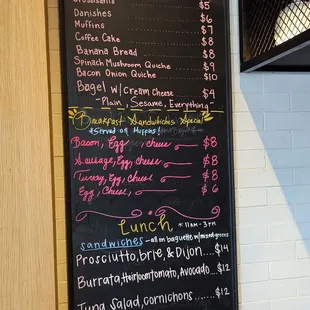 Croissants $5
Danishes $6
Muffins $7
Coffee Cake $8
Banana Bread $8
Spinach Mushroom Quiche $9
Bacon Onion Quiche $10
Bagel w/cream cheese $4
-Plain, Sesame, Everything-
Breakfast Sandwiches Special
*Served on Muffins!
Bacon, Egg, cheese $8
Sausage, Egg, Cheese $8
Turkey, Egg, Cheese $8
Egg, Cheese, $6
Lunch *11AM-3PM
sandwiches -all on baguette w/mixed greens
Prosciutto, brie, & Dijon....$14
Burrata, Heirloom tomato, Avocado...$12
Tuna Salad, cornichons....$12